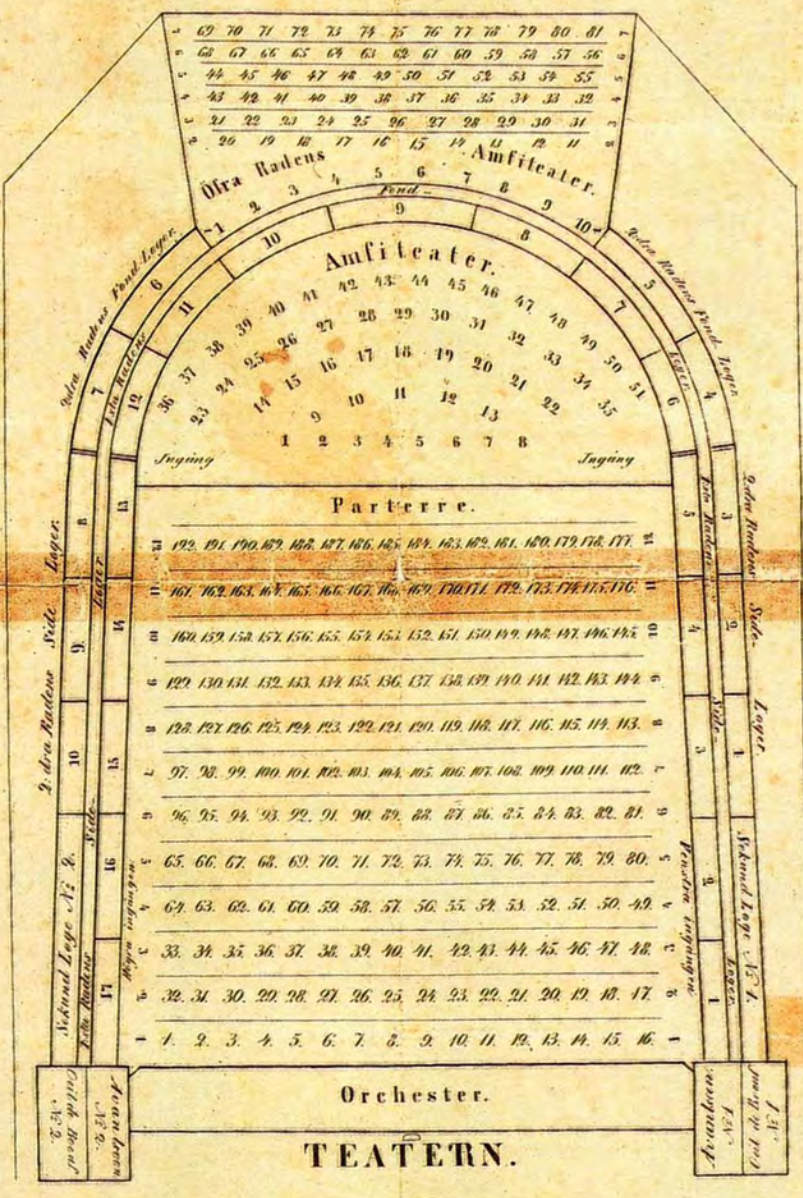 7 69 70 71 72 73 74 75 76 77 78 79 80 81 7
6 68 67 66 65 64 63 62 61 60 59 58 57 56 6
5 44 45 46 47 48 49 50 51 52 53 54 55 5
4 43 42 41 40 39 38 37 36 35 34 33 32 4
3 21 22 23 24 25 26 27 28 29 30 31 3
2 20 19 18 17 16 15 14 13 12 11 2
Öfra Radens Amfiteater.
1 2 3 4 5 6 7 8 9 10
Fond
12 11 10 9 8 7 6
2dra Radens Fond Loger.
7 6
1sta Radens
2dra Radens Fond Loger
5 4
Loger
Amfiteater.
36 37 38 39 40 41 42 43 44 45 46 47 48 49 50 51
23 24 25 26 27 28 29 30 31 32 33 34 35
14 15 16 17 18 19 20 21 22
9 10 11 12 13
1 2 3 4 5 6 7 8
Ingång Ingång
Parterre.
12 192. 191. 190. 189. 188. 187. 186. 185. 184. 183. 182. 181. 180. 179. 178. 177. 12
11 161. 162. 163. 164. 165. 166. 167. 168. 169. 170. 171. 172. 173. 174. 175. 176. 11
10 160. 159. 158. 157. 156. 155. 154. 153. 152. 151. 150. 149. 148. 147. 146. 145. 10
9 129. 130. 131. 132. 133. 134. 135. 136. 137. 138. 139. 140. 141. 142. 143. 144. 9
8 128. 127. 126. 125. 124. 123. 122. 121. 120. 119. 118. 117. 116. 115. 114. 113. 8
7 97. 98. 99. 100. 101. 102. 103. 104. 105. 106. 107. 108. 109. 110. 111. 112. 7
6 96. 95. 94. 93. 92. 91. 90. 89. 88. 87. 86. 85. 84. 83. 82. 81. 6
5 65. 66. 67. 68. 69. 70. 71. 72. 73. 74. 75. 76. 77. 78. 79. 80. 5
4 64. 63. 62. 61. 60. 59. 58. 57. 56. 55. 54. 53. 52. 51. 50. 49. 4
3 33. 34. 35. 36. 37. 38. 39. 40. 41. 42. 43. 44. 45. 46. 47. 48. 3
2 32. 31. 30. 29. 28. 27. 26. 25. 24. 23. 22. 21. 20. 19. 18. 17. 2
1 1. 2. 3. 4. 5. 6. 7. 8. 9. 10. 11. 12. 13. 14. 15. 16. 1
2:dra Radens Side Loger.
8 9. 10
Sekund Loge No 2.
1sta Radens Side- Loger
13 14 15 16 17
Högra ingången
2dra Radens Side- Loger.
3 2 1
Sekund Loge No 1.
1sta Radens Side- Loger.
5 4 3 2 1
Venstra ingången
Avantscen
No 2.
No 2.
Avantscen
Orchester.
TEATERN.